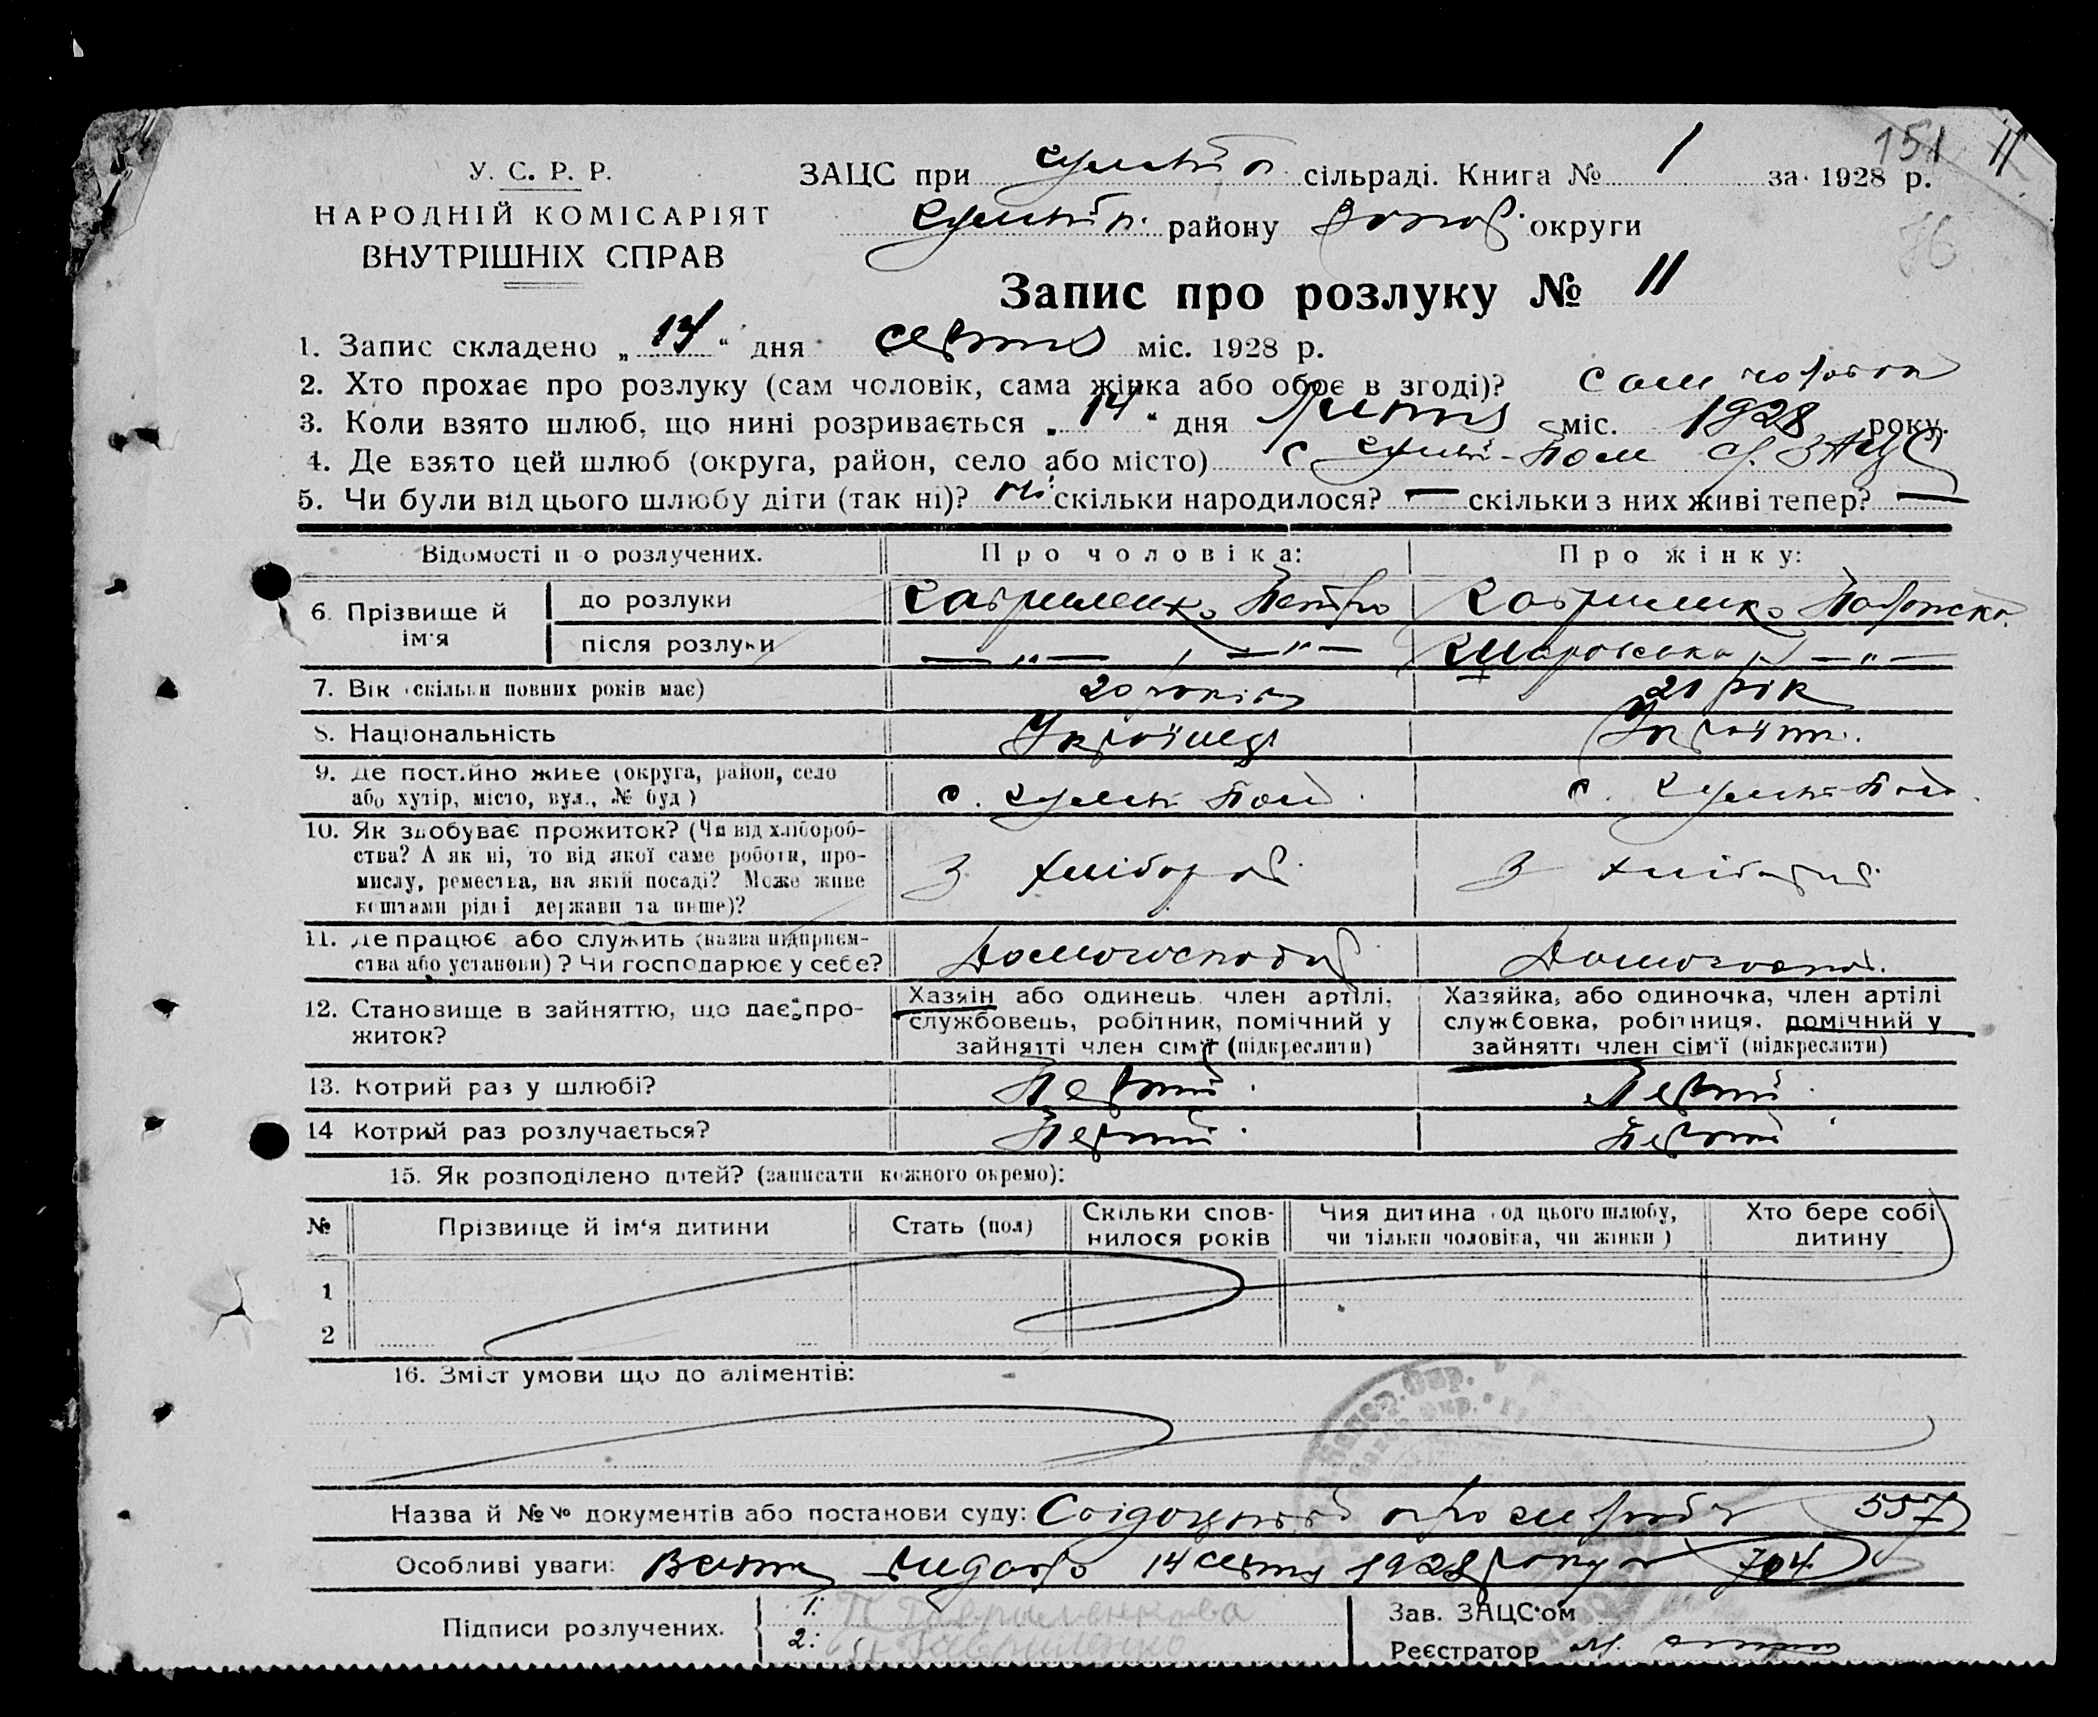 151 11
У. С. Р. Р.
НАРОДНІЙ КОМІСАРІЯТ
ВНУТРІШНІХ СПРАВ
ЗАЦС при сільраді. Книга № 1 за 1928 р.
району округи
76
Запис про розлуку № 11
1. Запис складено „14“ дня серпня міс. 1928 р.
2. Хто прохає про розлуку (сам чоловік, сама жінка або обоє в згоді)? сам чоловік
3. Коли взято шлюб, що нині розривається „14“ дня міс. 1928 року.
4. Де взято цей шлюб (округа, район, село або місто) с. Гуляй-Поле ЗАЦС
5. Чи були від цього шлюбу діти (так ні)? ні скільки народилося? — скільки з них живі тепер? —
Відомості про розлучених. Про чоловіка: Про жінку:
6. Прізвище й ім'я
до розлуки Гавриленко Петро Гавриленко
після розлуки — „ — — „ — — „ —
7. Вік (скільки повних років має) 20 років 21 рік
8. Національність Українець Українк.
9. Де постійно живе (округа, район, село або хутір, місто, вул., № буд.) с. Гуляй Поле с. Гуляй-Поле
10. Як здобуває прожиток? (Чи від хлібороб-
ства? А як ні, то від якої саме роботи, про-
мислу, ремества, на якій посаді? Може живе
коштами рідні держави та инше)?
З хлібороб. З хлібороб.
11. Де працює або служить (назва підприєм-
ства або установи)? Чи господарює у себе?
Домогосподар Домогоспод.
12. Становище в зайняттю, що дає про-
житок?
Хазяін або одинець, член артілі,
службовець, робітник, помічний у
зайнятті член сім'ї (підкреслити)
Хазяйка, або одиночка, член артілі
службовка, робітниця, помічний у
зайнятті член сім'ї (підкреслити)
13. Котрий раз у шлюбі? Первий Первий
14 Котрий раз розлучається? Первий Первий
15. Як розподілено дітей? (записати кожного окремо):
№ Прізвище й ім'я дитини Стать (пол) Скільки спов-
нилося років Чия дитина (од цього шлюбу,
чи тільки чоловіка, чи жінки) Хто бере собі
дитину
1
2
16. Зміст умови що до аліментів:
Назва й №№ документів або постанови суду: 557
Особливі уваги: видано 14 серпня 1928 року 704
Підписи розлучених.
1. П Гавриленкова
2. Гавриленко
Зав. ЗАЦС'ом
Реєстратор